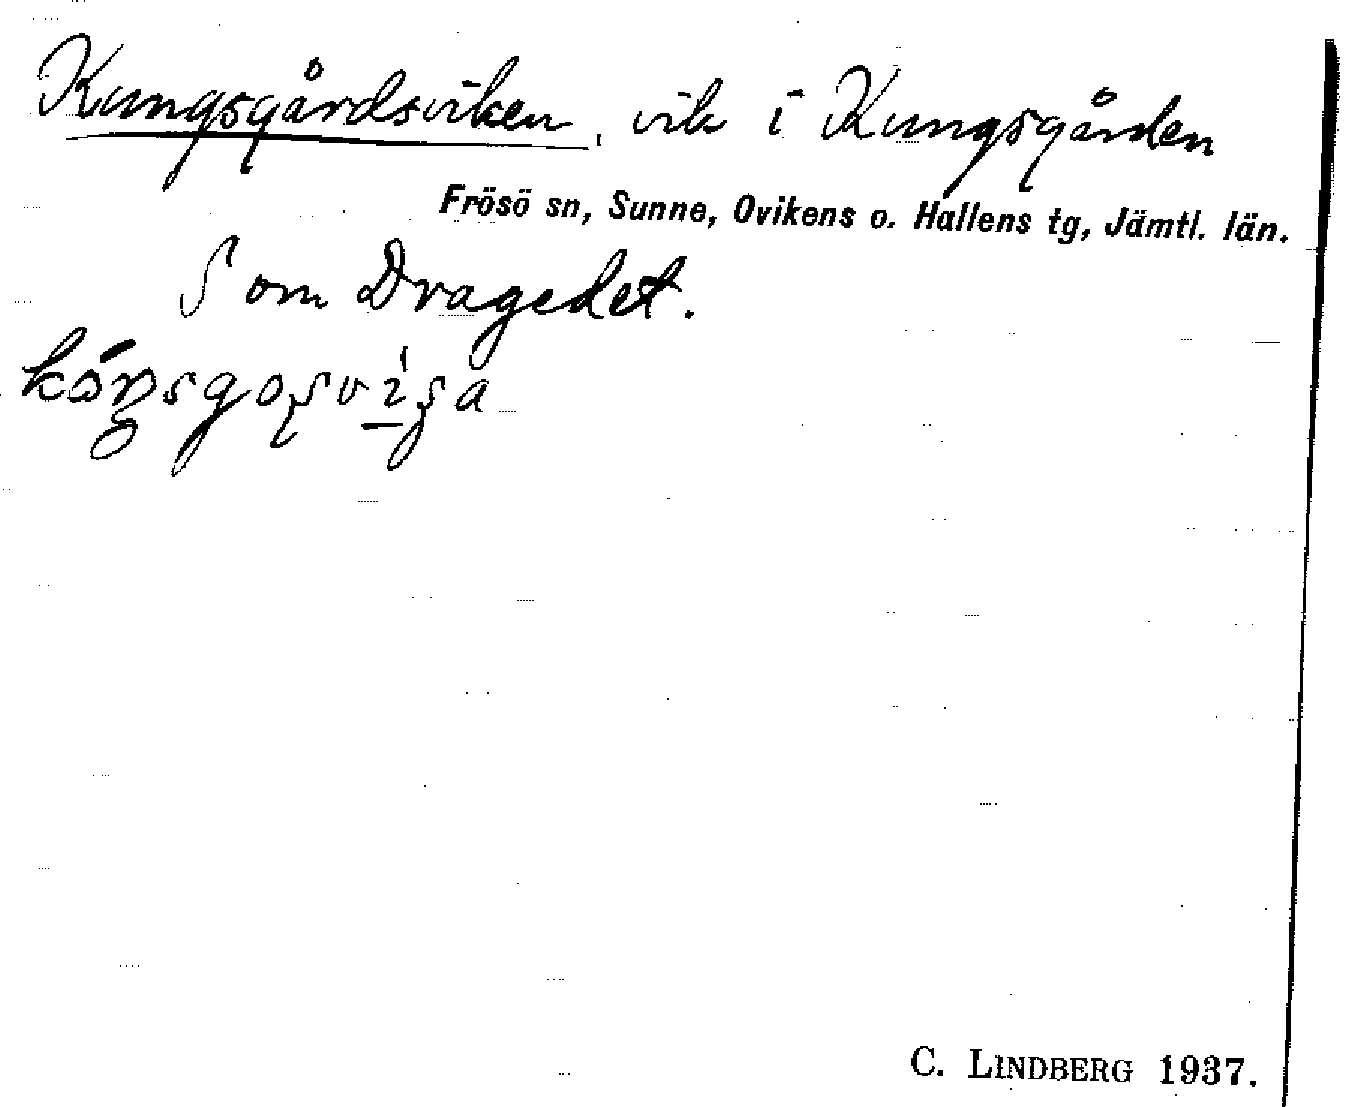 Kungsgårdsviken, vik i Kungsgården
Frösö sn, Sunne, Ovikens o. Hallens tg, Jämtl. län.
S om Dragedet.
C. LINDBERG 1937.